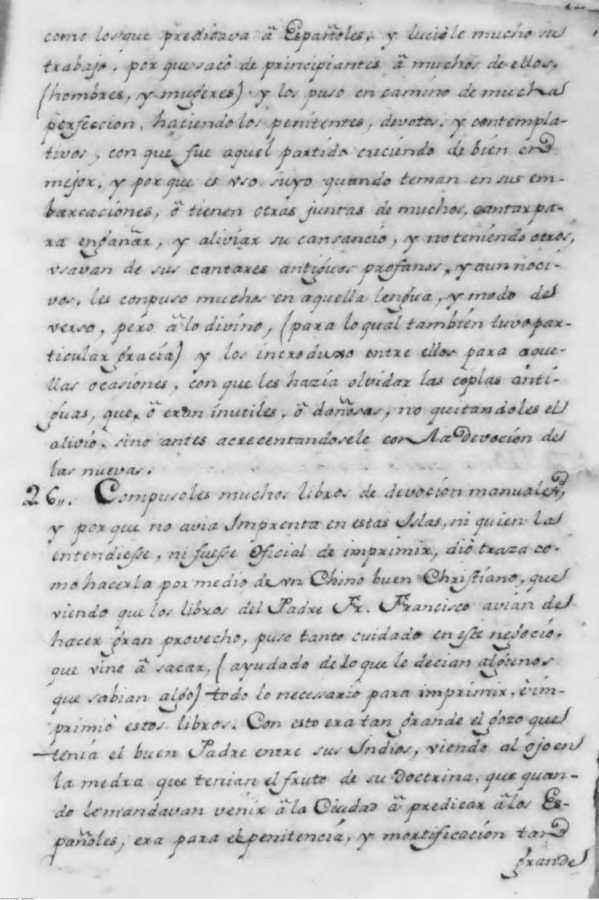 como los que predicava â Españoles, y luciòle mucho su
trabajo, por que sacò de principiantes â muchos de ellos,
(hombres, y mugeres) y los puso en camino de mucha
perfeccion, haciendolos penitentes, devotos, y contempla-
tivos, con que fue aquel partido creciendo de bien en
mejor, y por que es vso suyo quando reman en sus em-
barcaciones, ô tienen otras juntas de muchos, cantar pa-
ra engañar, y aliviar su cansancio, y no teniendo otros,
vsavan de sus cantares antiguos profanos, y aun noci-
vos, les conpuso muchos en aquella lengua, y modo de
verso, pero â lo divino, (para lo qual tambien tuvo par-
ticular gracia) y los introduxo entre ellos para aque-
llas ocasiones, con que les hazia olvidar las coplas anti-
guas, que, ô eran inutiles, ô dañosas, no quitandoles el
alivio, sino antes acrecentandosele con la Devocion de
las nuevas.
26,,. Compusoles muchos libros de devocion manuales,
y por que no avia Imprenta en estas Islas, ni quien la
entendiesse, ni fuesse Oficial de imprimir, diò traza co-
mo hacerla por medio de vn Chino buen Christiano, que
viendo que los libros del Padre Fr. Francisco avian de
hacer gran provecho, puso tanto cuidado en este negocio,
que vino â sacar, (ayudado de lo que le decian algunos
que sabian algo) todo lo necessario para imprimir, è im-
primiò estos libros. Con esto era tan grande el gozo que
tenia el buen Padre entre sus Indios, viendo al ojo en
la medra que tenian el fruto de su Doctrina, que quan-
do le mandavan venir â la Ciudad â predicar â los Es-
pañoles, era para el penitencia, y mortificacion tan
grande